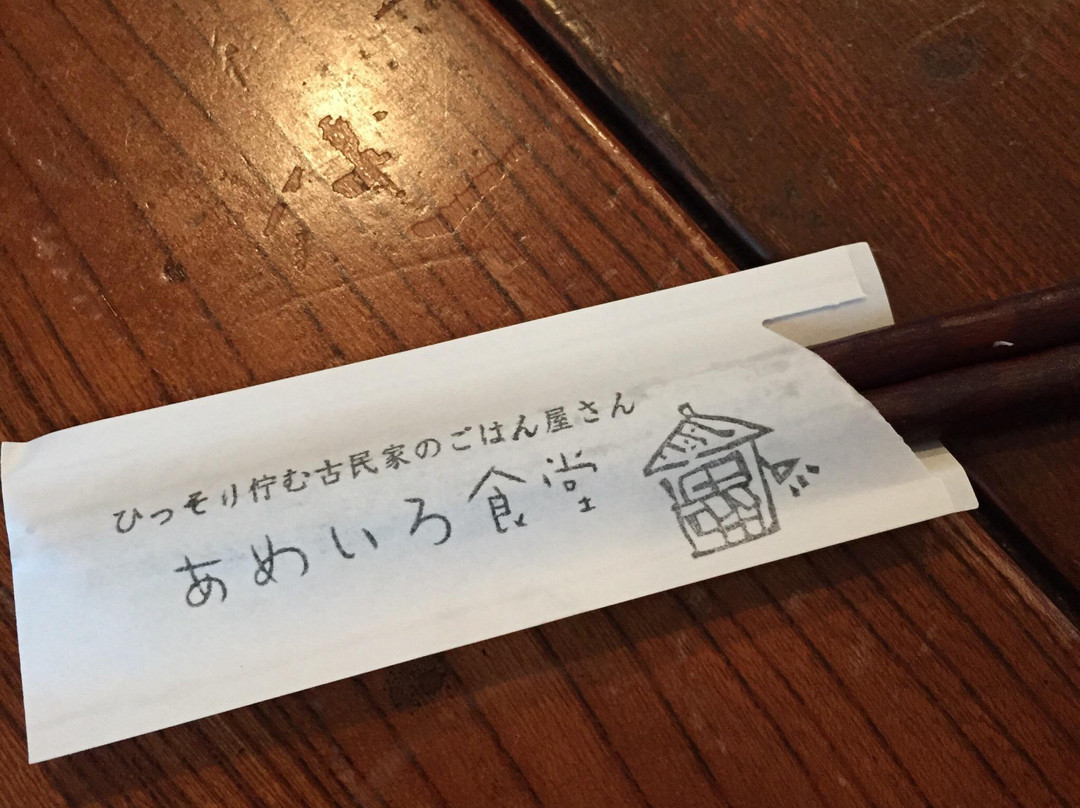 ひっそり佇む古民家のごはん屋さん
あめいろ食堂